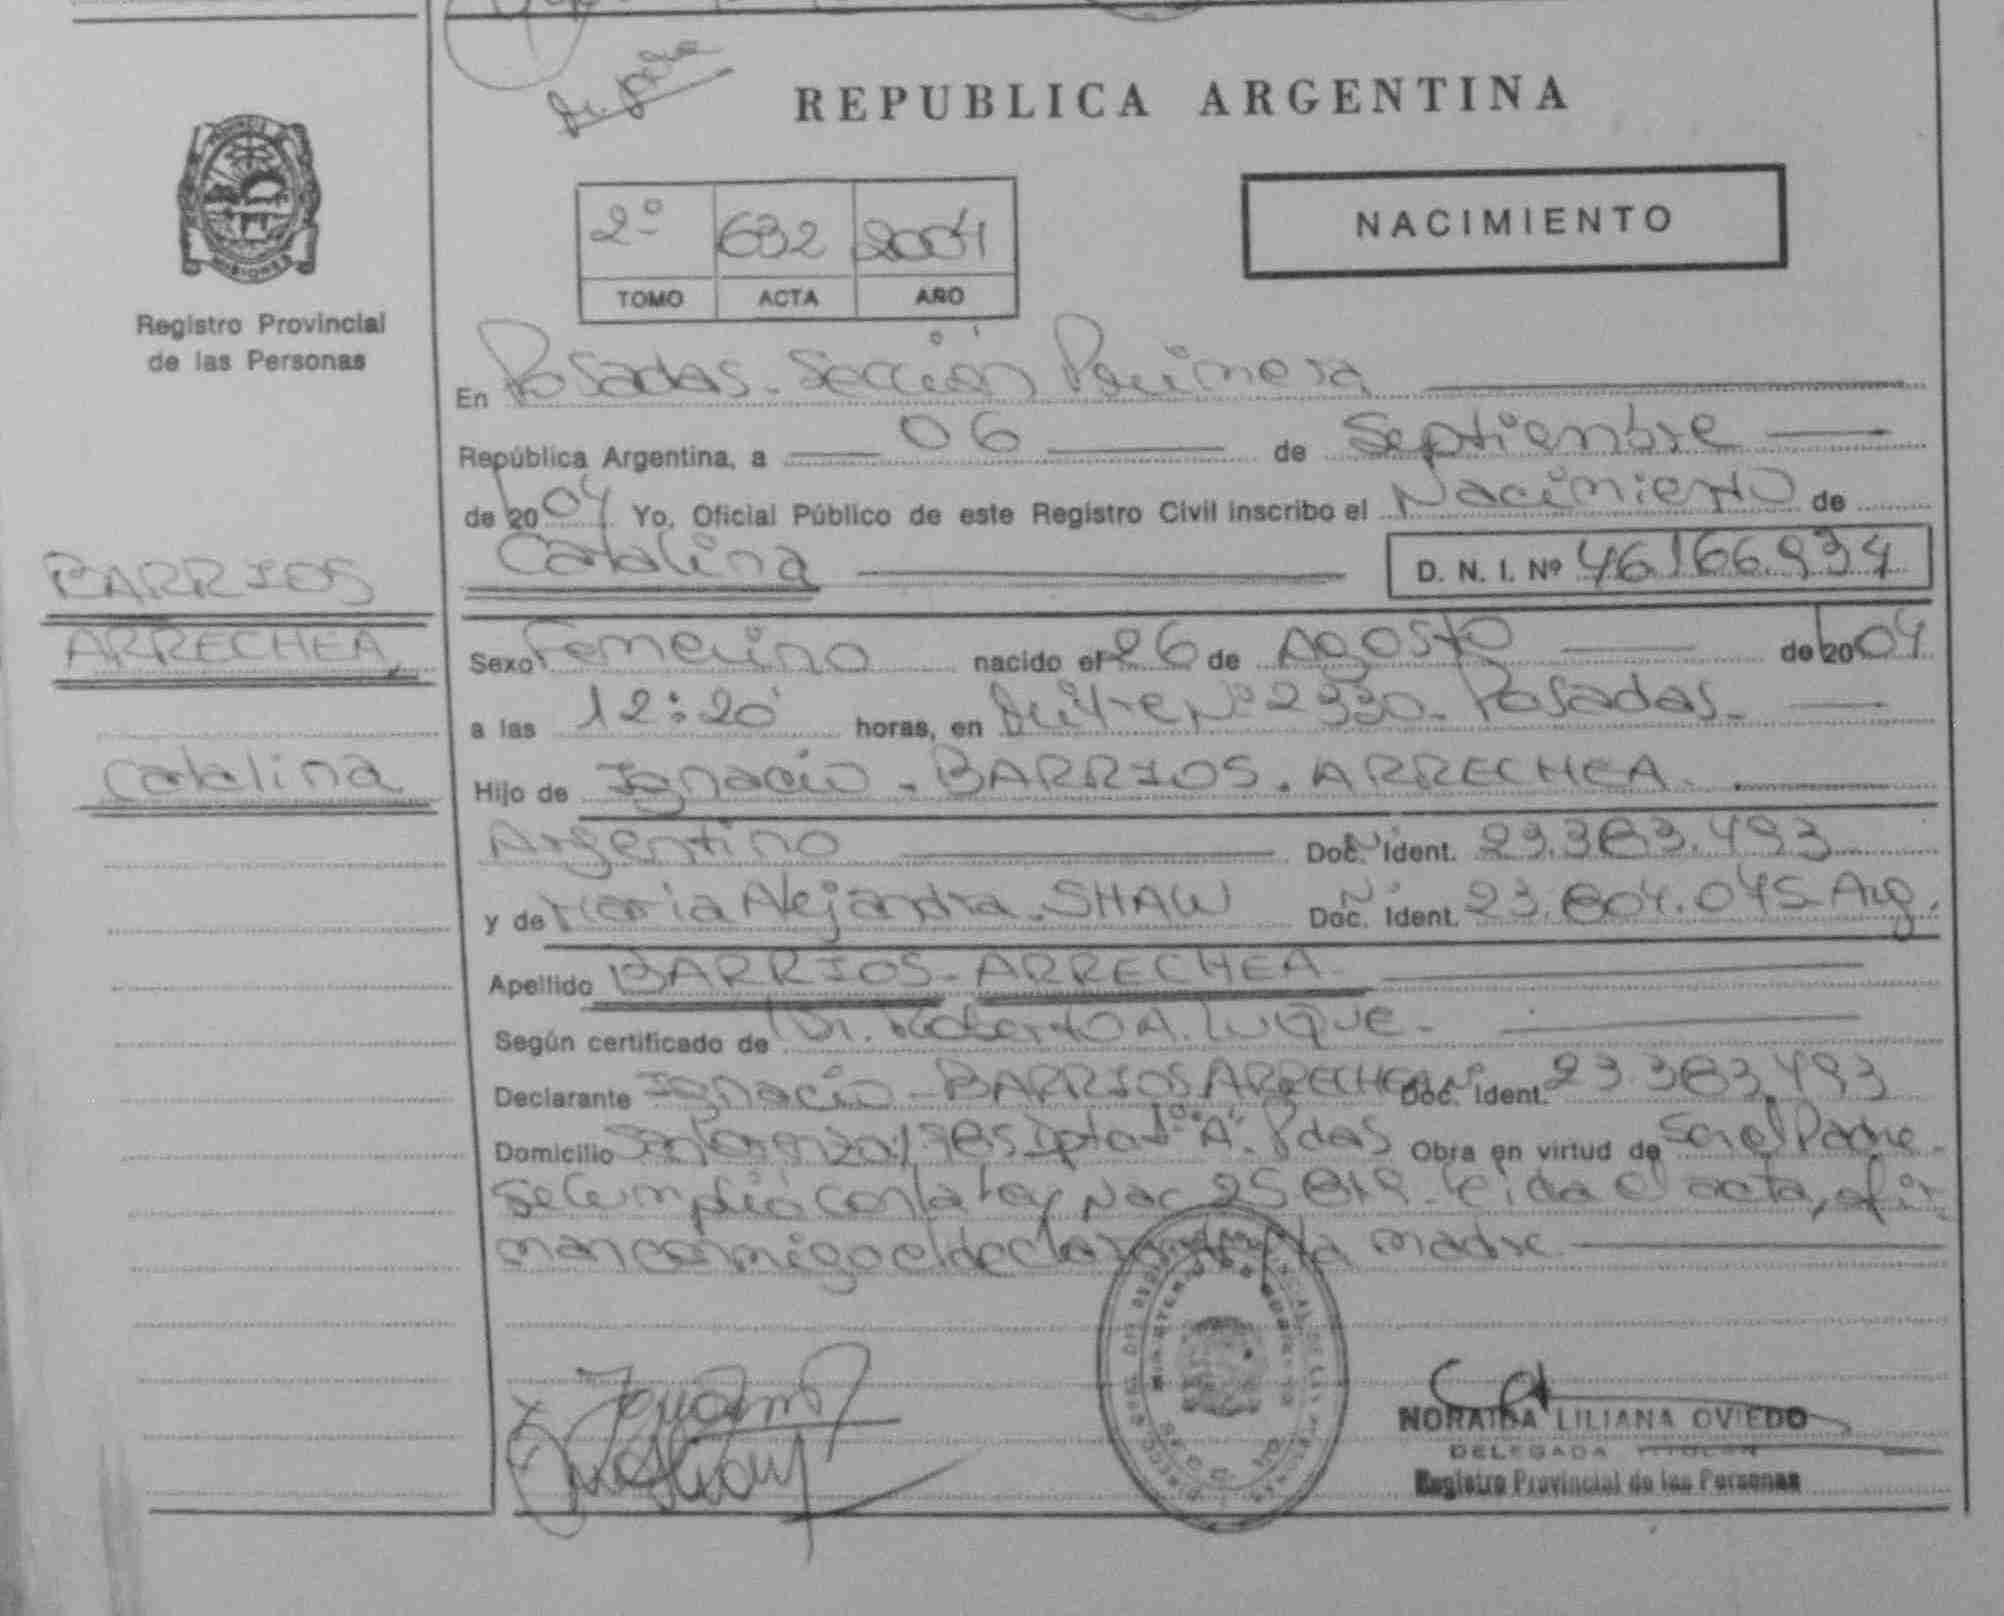 REPUBLICA ARGENTINA
NACIMIENTO
2º 632 2004
TOMO ACTA AÑO
Registro Provincial
de las Personas
En Posadas - Sección Primera
República Argentina, a 06 de Septiembre
de 2004 Yo, Oficial Público de este Registro Civil inscribo el Nacimiento de
Catalina D. N. I. Nº 46.166.934
BARRIOS
ARRECHEA,
Catalina
Sexo Femenino nacido el 26 de Agosto de 2004
a las 12:20 horas, en Nº 2330 - Posadas -
Hijo de Ignacio - BARRIOS . ARRECHEA -
Argentino Doc. Ident. 23.383.493
y de María Alejandra - SHAW Doc. Ident. 23.804.045 Arg.
Apellido BARRIOS - ARRECHEA -
Según certificado de Dr. Roberto A. Luque -
Declarante Ignacio - BARRIOS ARRECHEA Doc. Ident. 23.383.493
Domicilio "A" - Pdas Obra en virtud de Ser el Padre -
Se Cumplió con la Ley Nac 25819 - leída el acta, afir
man conmigo el declarante la madre
NORAIDA LILIANA OVIEDO
DELEGADA TITULAR
Registro Provincial de las Personas